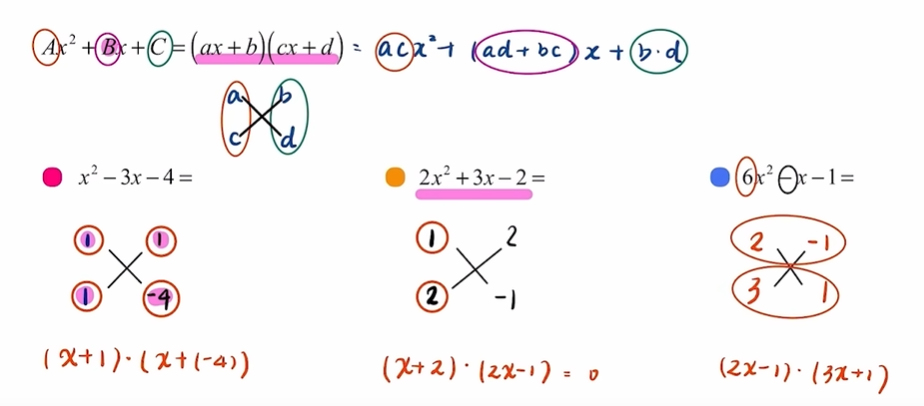 Ax² + Bx + C = (ax + b)(cx + d) = acx² + (ad + bc)x + b·d
a b
c d
x² − 3x − 4 =
1 1
1 -4
(x+1)·(x+(-4))
2x² + 3x − 2 =
1 2
2 -1
(x+2)·(2x-1) = 0
6x² − x − 1 =
2 -1
3 1
(2x-1)·(3x+1)